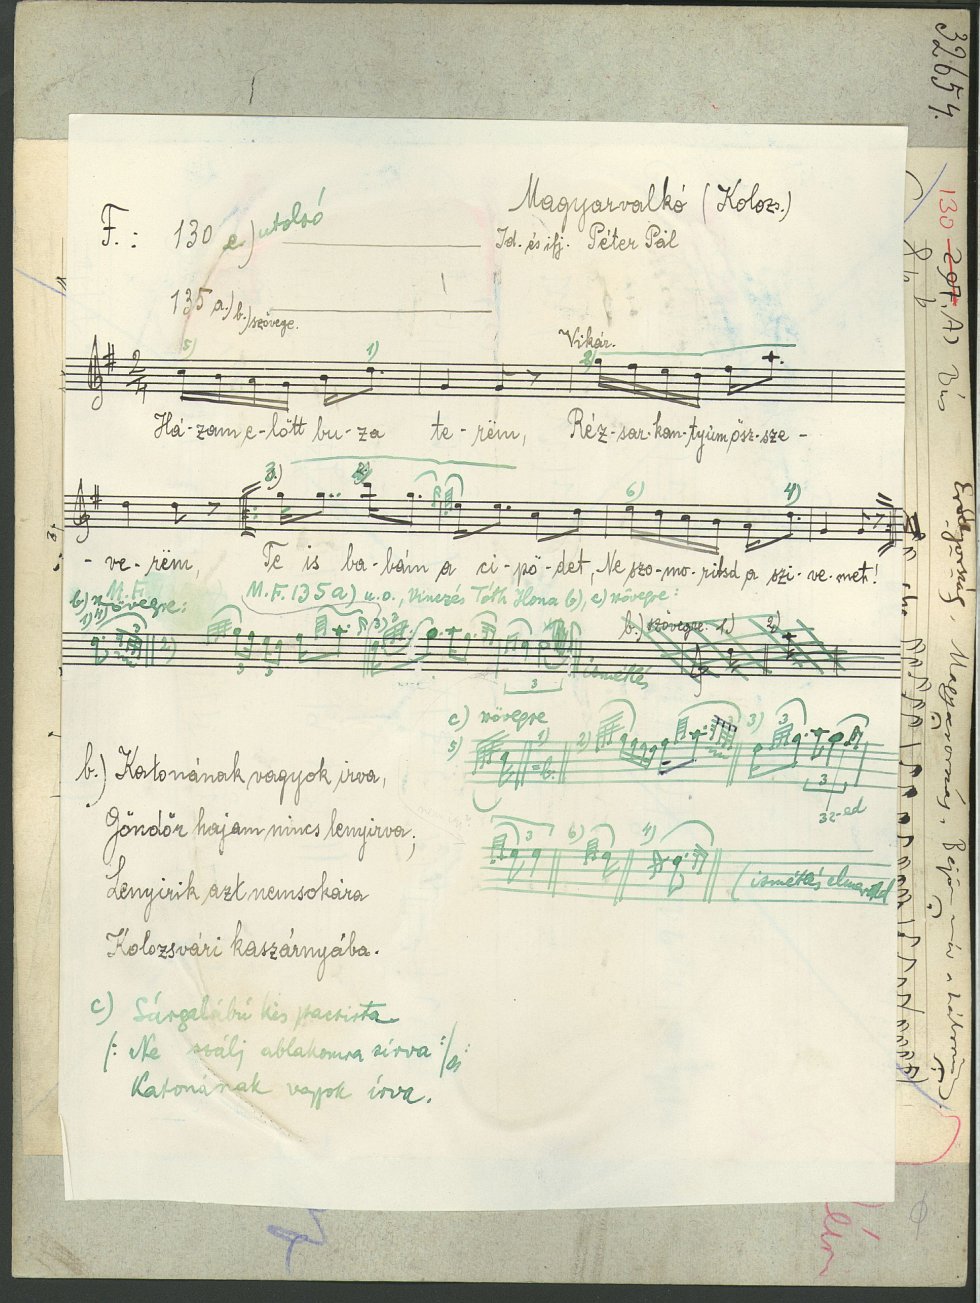 32654.
Magyarvalkó (Kolozs.)
F.: 130 e) utolsó
Id. és ifj. Péter Pál
135 a.) b.) szövege.
Vikár.
5) 1) 2)
2/4
Há-zam e-lőtt bu-za te-rëm, Réz-sar-kan-tyúm ösz-sze-
3) 6) 4)
-ve-rëm, Te is ba-bám a ci-pő-det, Ne szo-mo-ritsd a szi-ve-met!
M.F.
M.F. 135 a) u.o., Vinczés Tóth Ilona b), c) szövegre:
b) szövegre:
1) 4)
2) 3)
b.) szövegre. 1.) 2)
3 3 3
ismétlés
c) szövegre
5) 1) 2) 3) 3
= b.
3
32-ed
3 6) 4)
(ismétlés elmarad
b.) Katonának vagyok irva,
Göndör hajam nincs lenyirva;
Lenyirik azt nemsokára
Kolozsvári kaszárnyába.
c) Sárgalábú kis pacsirta
/: Ne szálj ablakomra sírva :/
Katonának vagyok írva.
130
207. A)
Erdélyország, Magyarország,